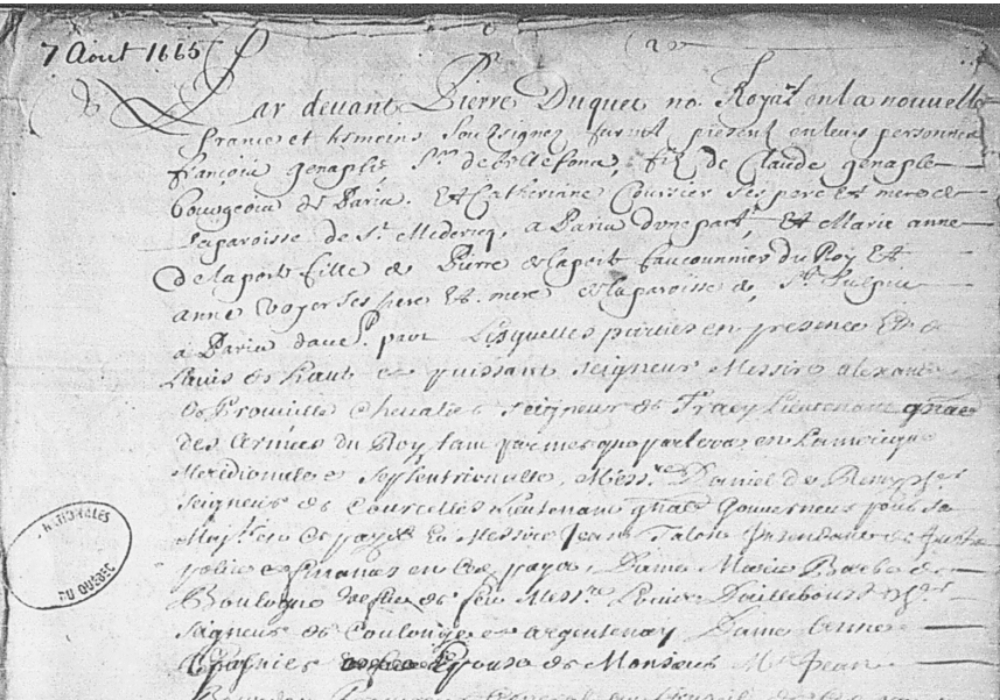 7 Aout 1665
Par devant Pierre Duquet no. Royal en la nouvelle
france et tesmoins Soussignez furent present en leurs personnes
françois genaple Sr de Bellefond, fil de Claude genaple
bourgeois de Paris. Et Catherine Coursier ses pere et mere de
la paroisse de St. Medericq, a Paris dune part, Et Marie anne
de laporte fille de Pierre de laporte fauconnier du Roy Et
anne voyer ses pere Et mere de la paroisse de St Sulpice
a Paris dautre part Lesquelles parties en presence Et de
Lavis de haut et puissant seigneur Messire alexandre
de Prouville Chevalier seigneur de Tracy Lieutenant gnal
des armées du Roy tant par mer que par terre en Lamerique
Meridionale et septentrionalle, Messre Daniel de Remy
seigneur de Courcelles Lieutenant gnal Gouverneur pour sa
Majté en ce pays Et Messire Jean Talon Intendant de Justice
police et finances en ce pays, Dame Marie Barbe de
Boulogne vefve de feu Messre Louis Dailleboust
seigneur de Coulonge et argentenay Dame anne
espouse de Monsieur Jean
Bourdon general au Conseil de
NATIONALES
DU QUÉBEC